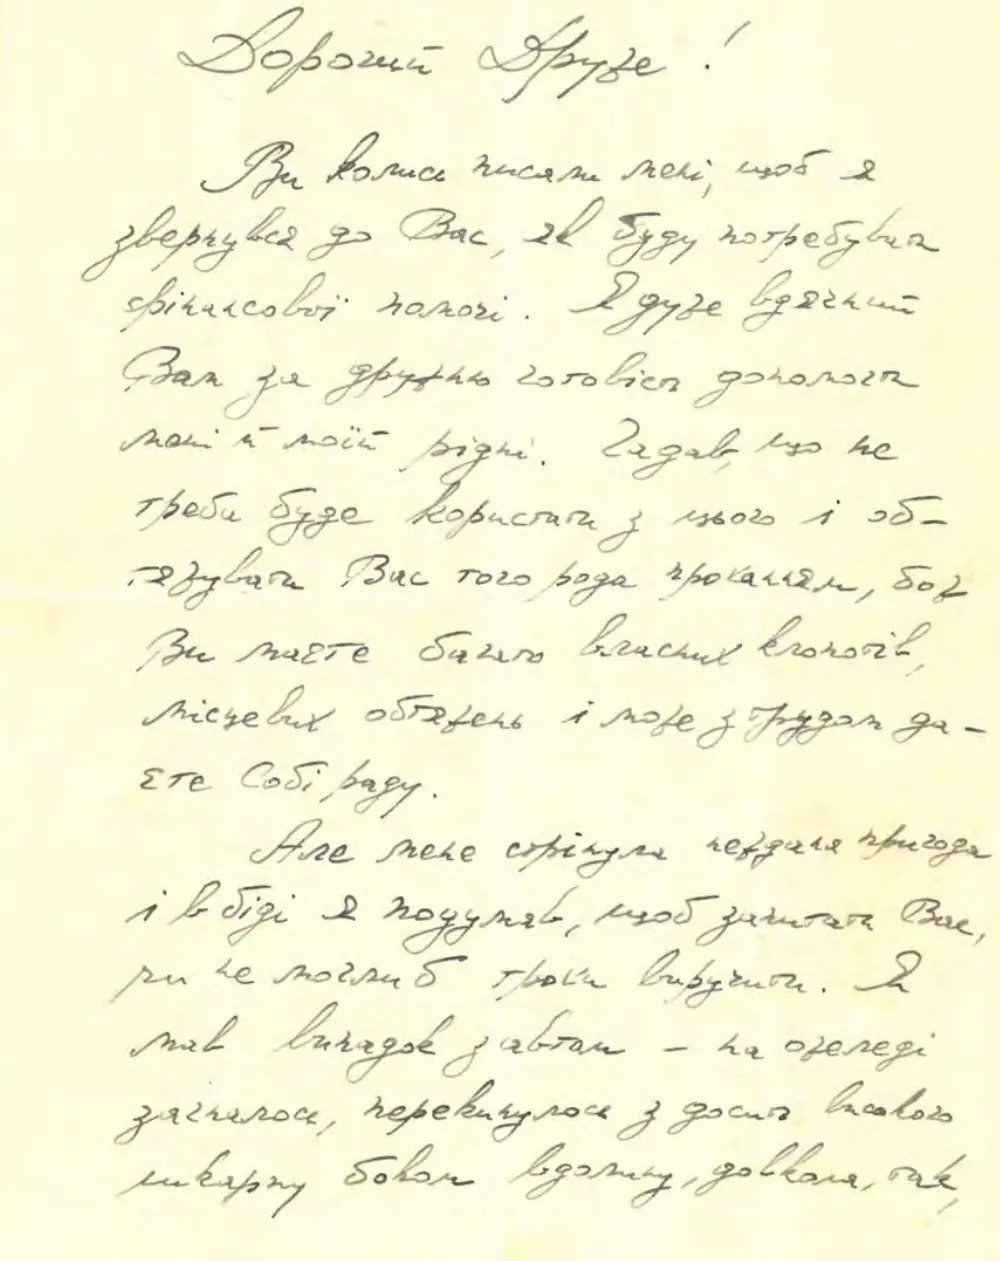 Дорогий Друже!
Ви колись писали мені, щоб я
звернувся до Вас, як буду потребувати
фінансової помочі. Я дуже вдячний
Вам за дружню готовість допомогти
мені й моїй рідні. Гадав, що не
треба буде користати з цього і об-
тяжувати Вас того рода проханням, бож
Ви маєте багато власних клопотів,
місцевих обтяжень і може з трудом да-
єте Собі раду.
Але мене стрінула неждана пригода
і в біді я подумав, щоб запитати Вас,
чи не могли б трохи виручити. Я
мав випадок з автом – на ожеледі
загналось, перекинулось з досить високого
шкарпу боком вдолину, довкола, так,